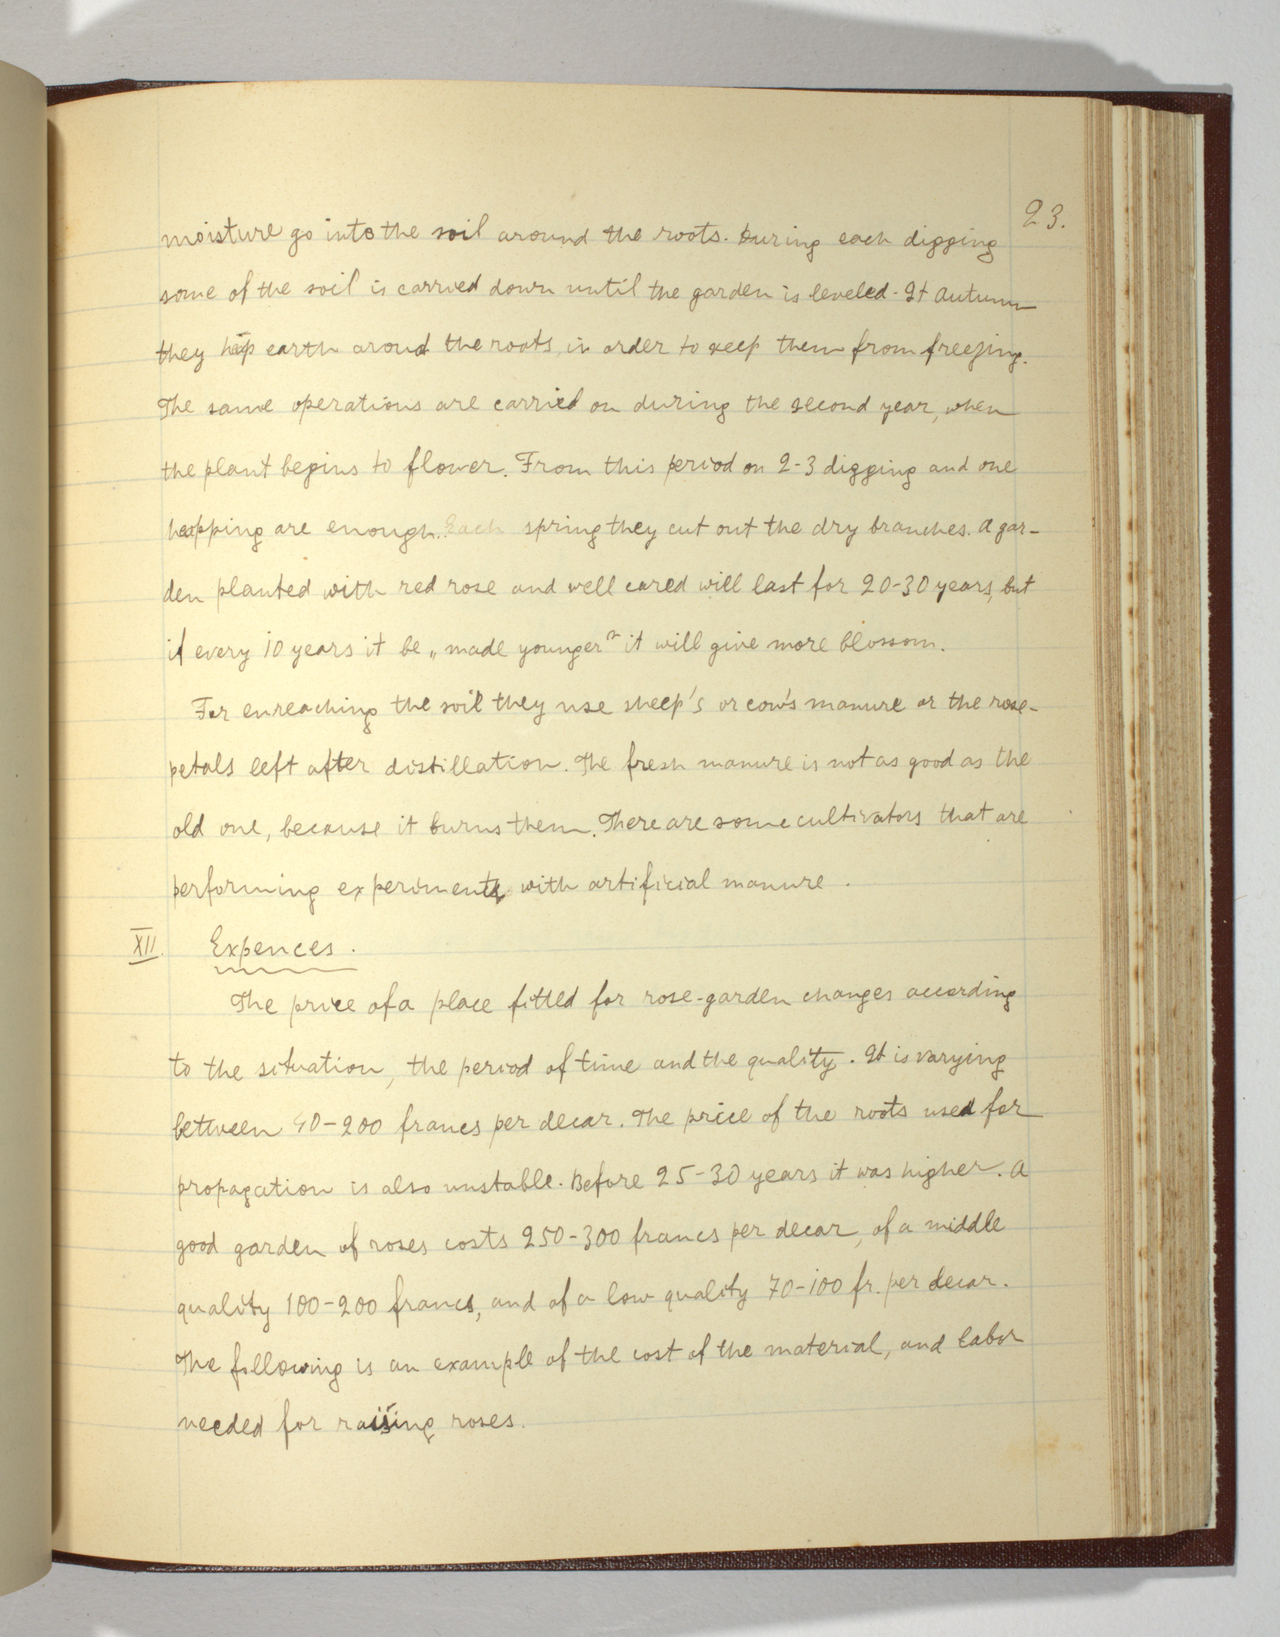 23.
moisture go into the soil around the roots. During each digging
some of the soil is carried down until the garden is leveled. It Autumn
they heap earth around the roots, in order to keep them from freezing.
The same operations are carried on during the second year, when
the plant begins to flower. From this period on 2-3 digging and one
heapping are enough. Each spring they cut out the dry branches. A gar-
den planted with red rose and well cared will last for 20-30 years, but
if every 10 years it be „made younger" it will give more blossom.
For enreaching the soil they use sheep's or cow's manure or the rose-
petals left after distillation. The fresh manure is not as good as the
old one, because it burns them. There are some cultivators that are
performing experiments with artificial manure.
XII. Expences.
The price of a place fitted for rose-garden changes according
to the situation, the period of time and the quality. It is varying
between 40-200 francs per decar. The price of the roots used for
propagation is also unstable. Before 25-30 years it was higher. A
good garden of roses costs 250-300 francs per decar, of a middle
quality 100-200 francs, and of a low quality 70-100 fr. per decar.
The following is an example of the cost of the material, and labor
needed for raising roses.